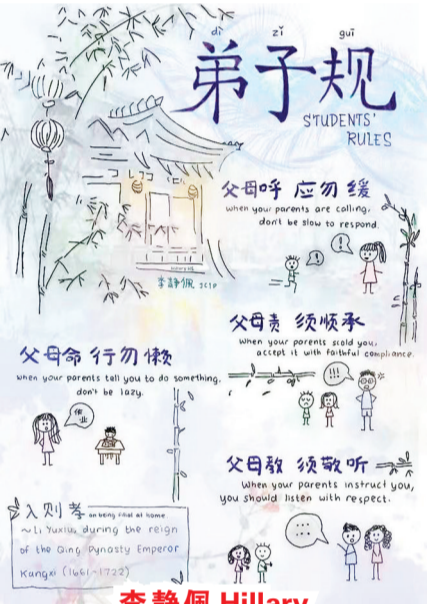 dì zǐ guī
弟子规
STUDENTS'
RULES
父母呼 应勿缓
when your parents are calling,
don't be slow to respond.
!
!
李静佩 SC1P
父母责 须顺承
When your parents scold you,
accept it with faithful compliance.
!!!
父母命 行勿懒
when your parents tell you to do something,
don't be lazy.
作业
父母教 须敬听
When your parents instruct you,
you should listen with respect.
...
...
入则孝 on being filial at home
~ Li Yuxiu, during the reign
of the Qing Dynasty Emperor
Kangxi (1661-1722)
李静佩 Hillary